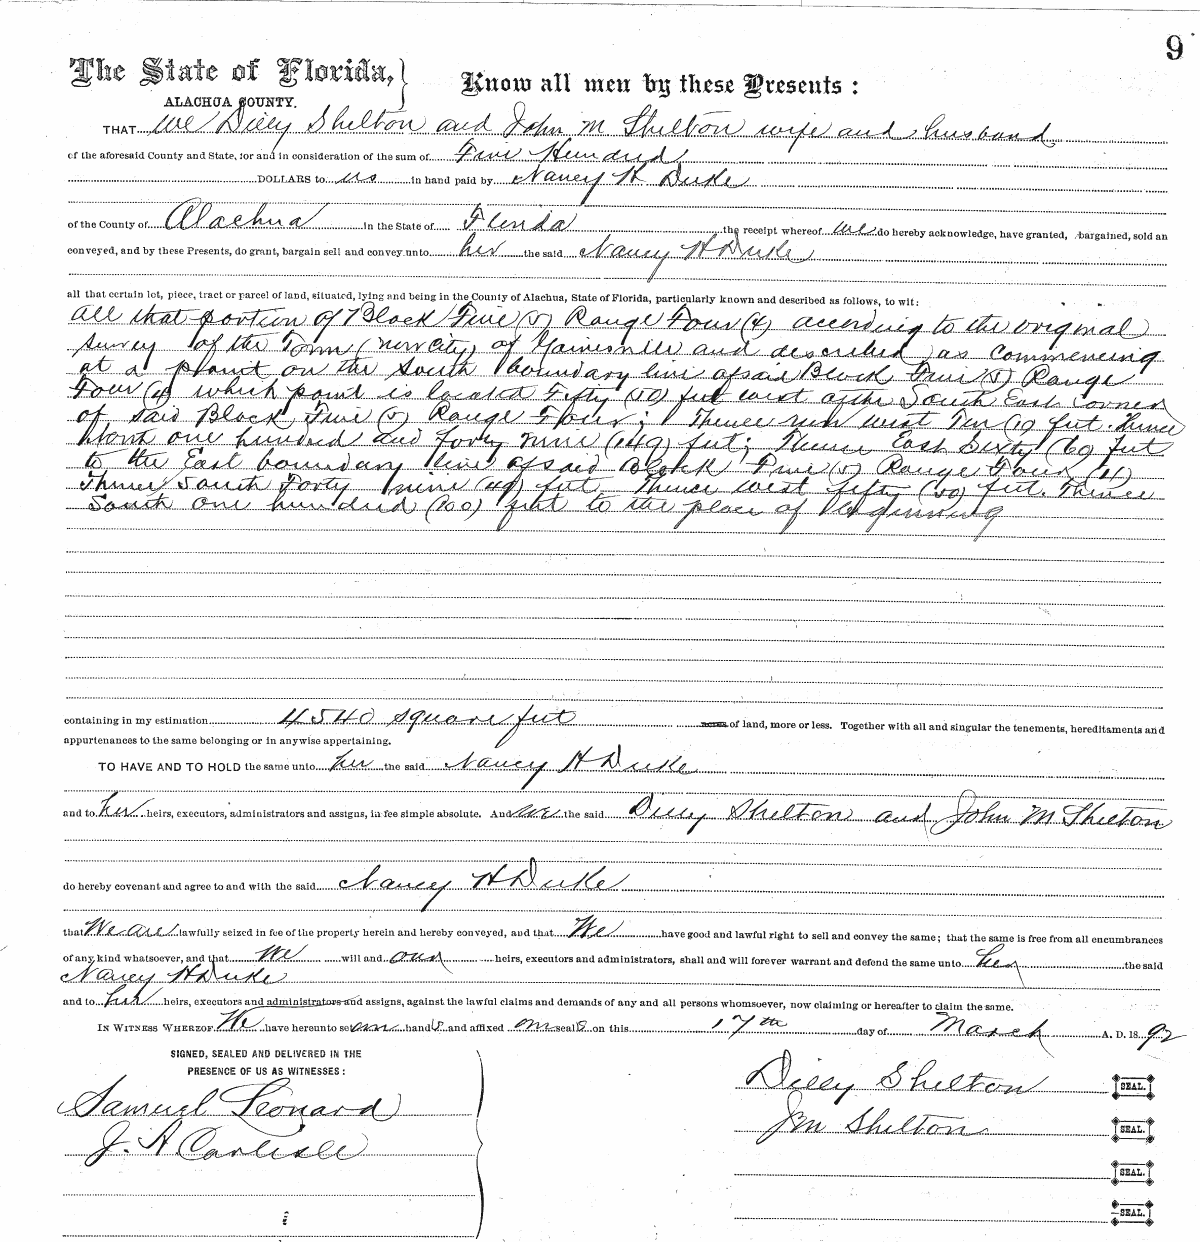 9
The State of Florida,
ALACHUA COUNTY.
Know all men by these Presents:
THAT We Dilly Shelton and John M Shelton wife and husband
of the aforesaid County and State, for and in consideration of the sum of Five Hundred
DOLLARS to us in hand paid by Nancy H Duke
of the County of Alachua in the State of Florida the receipt whereof we do hereby acknowledge, have granted, bargained, sold an
conveyed, and by these Presents, do grant, bargain sell and convey unto her the said Nancy H Duke
all that certain lot, piece, tract or parcel of land, situated, lying and being in the County of Alachua, State of Florida, particularly known and described as follows, to wit:
All that portion of Block Five (5) Range Four (4) according to the original
survey of the Town (now City) of Gainesville and described as Commencing
at a point on the South boundary line of said Block Five (5) Range
Four (4) which point is located Fifty (50) feet west of the South East corner
of said Block Five (5) Range Four; Thence run west Ten (10) feet. thence
North one hundred and forty nine (149) feet; Thence East Sixty (60) feet
to the East boundary line of said Block Five (5) Range Four (4)
Thence South Forty nine (49) feet, Thence west fifty (50) feet. Thence
South one hundred (100) feet to the place of beginning
containing in my estimation 4540 square feet acres of land, more or less. Together with all and singular the tenements, hereditaments and
appurtenances to the same belonging or in anywise appertaining.
TO HAVE AND TO HOLD the same unto her the said Nancy H Duke
and to her heirs, executors, administrators and assigns, in fee simple absolute. And we the said Dilly Shelton and John M Shelton
do hereby covenant and agree to and with the said Nancy H Duke
that We are lawfully seized in fee of the property herein and hereby conveyed, and that We have good and lawful right to sell and convey the same; that the same is free from all encumbrances
of any kind whatsoever, and that We will and our heirs, executors and administrators, shall and will forever warrant and defend the same unto her the said
Nancy H Duke
and to her heirs, executors and administrators and assigns, against the lawful claims and demands of any and all persons whomsoever, now claiming or hereafter to claim the same.
IN WITNESS WHEREOF We have hereunto set our hands and affixed our seals on this 17th day of March A. D. 1892
SIGNED, SEALED AND DELIVERED IN THE
PRESENCE OF US AS WITNESSES:
Samuel Leonard
J. A Carlisle
Dilly Shelton SEAL.
J M Shelton SEAL.
SEAL.
SEAL.